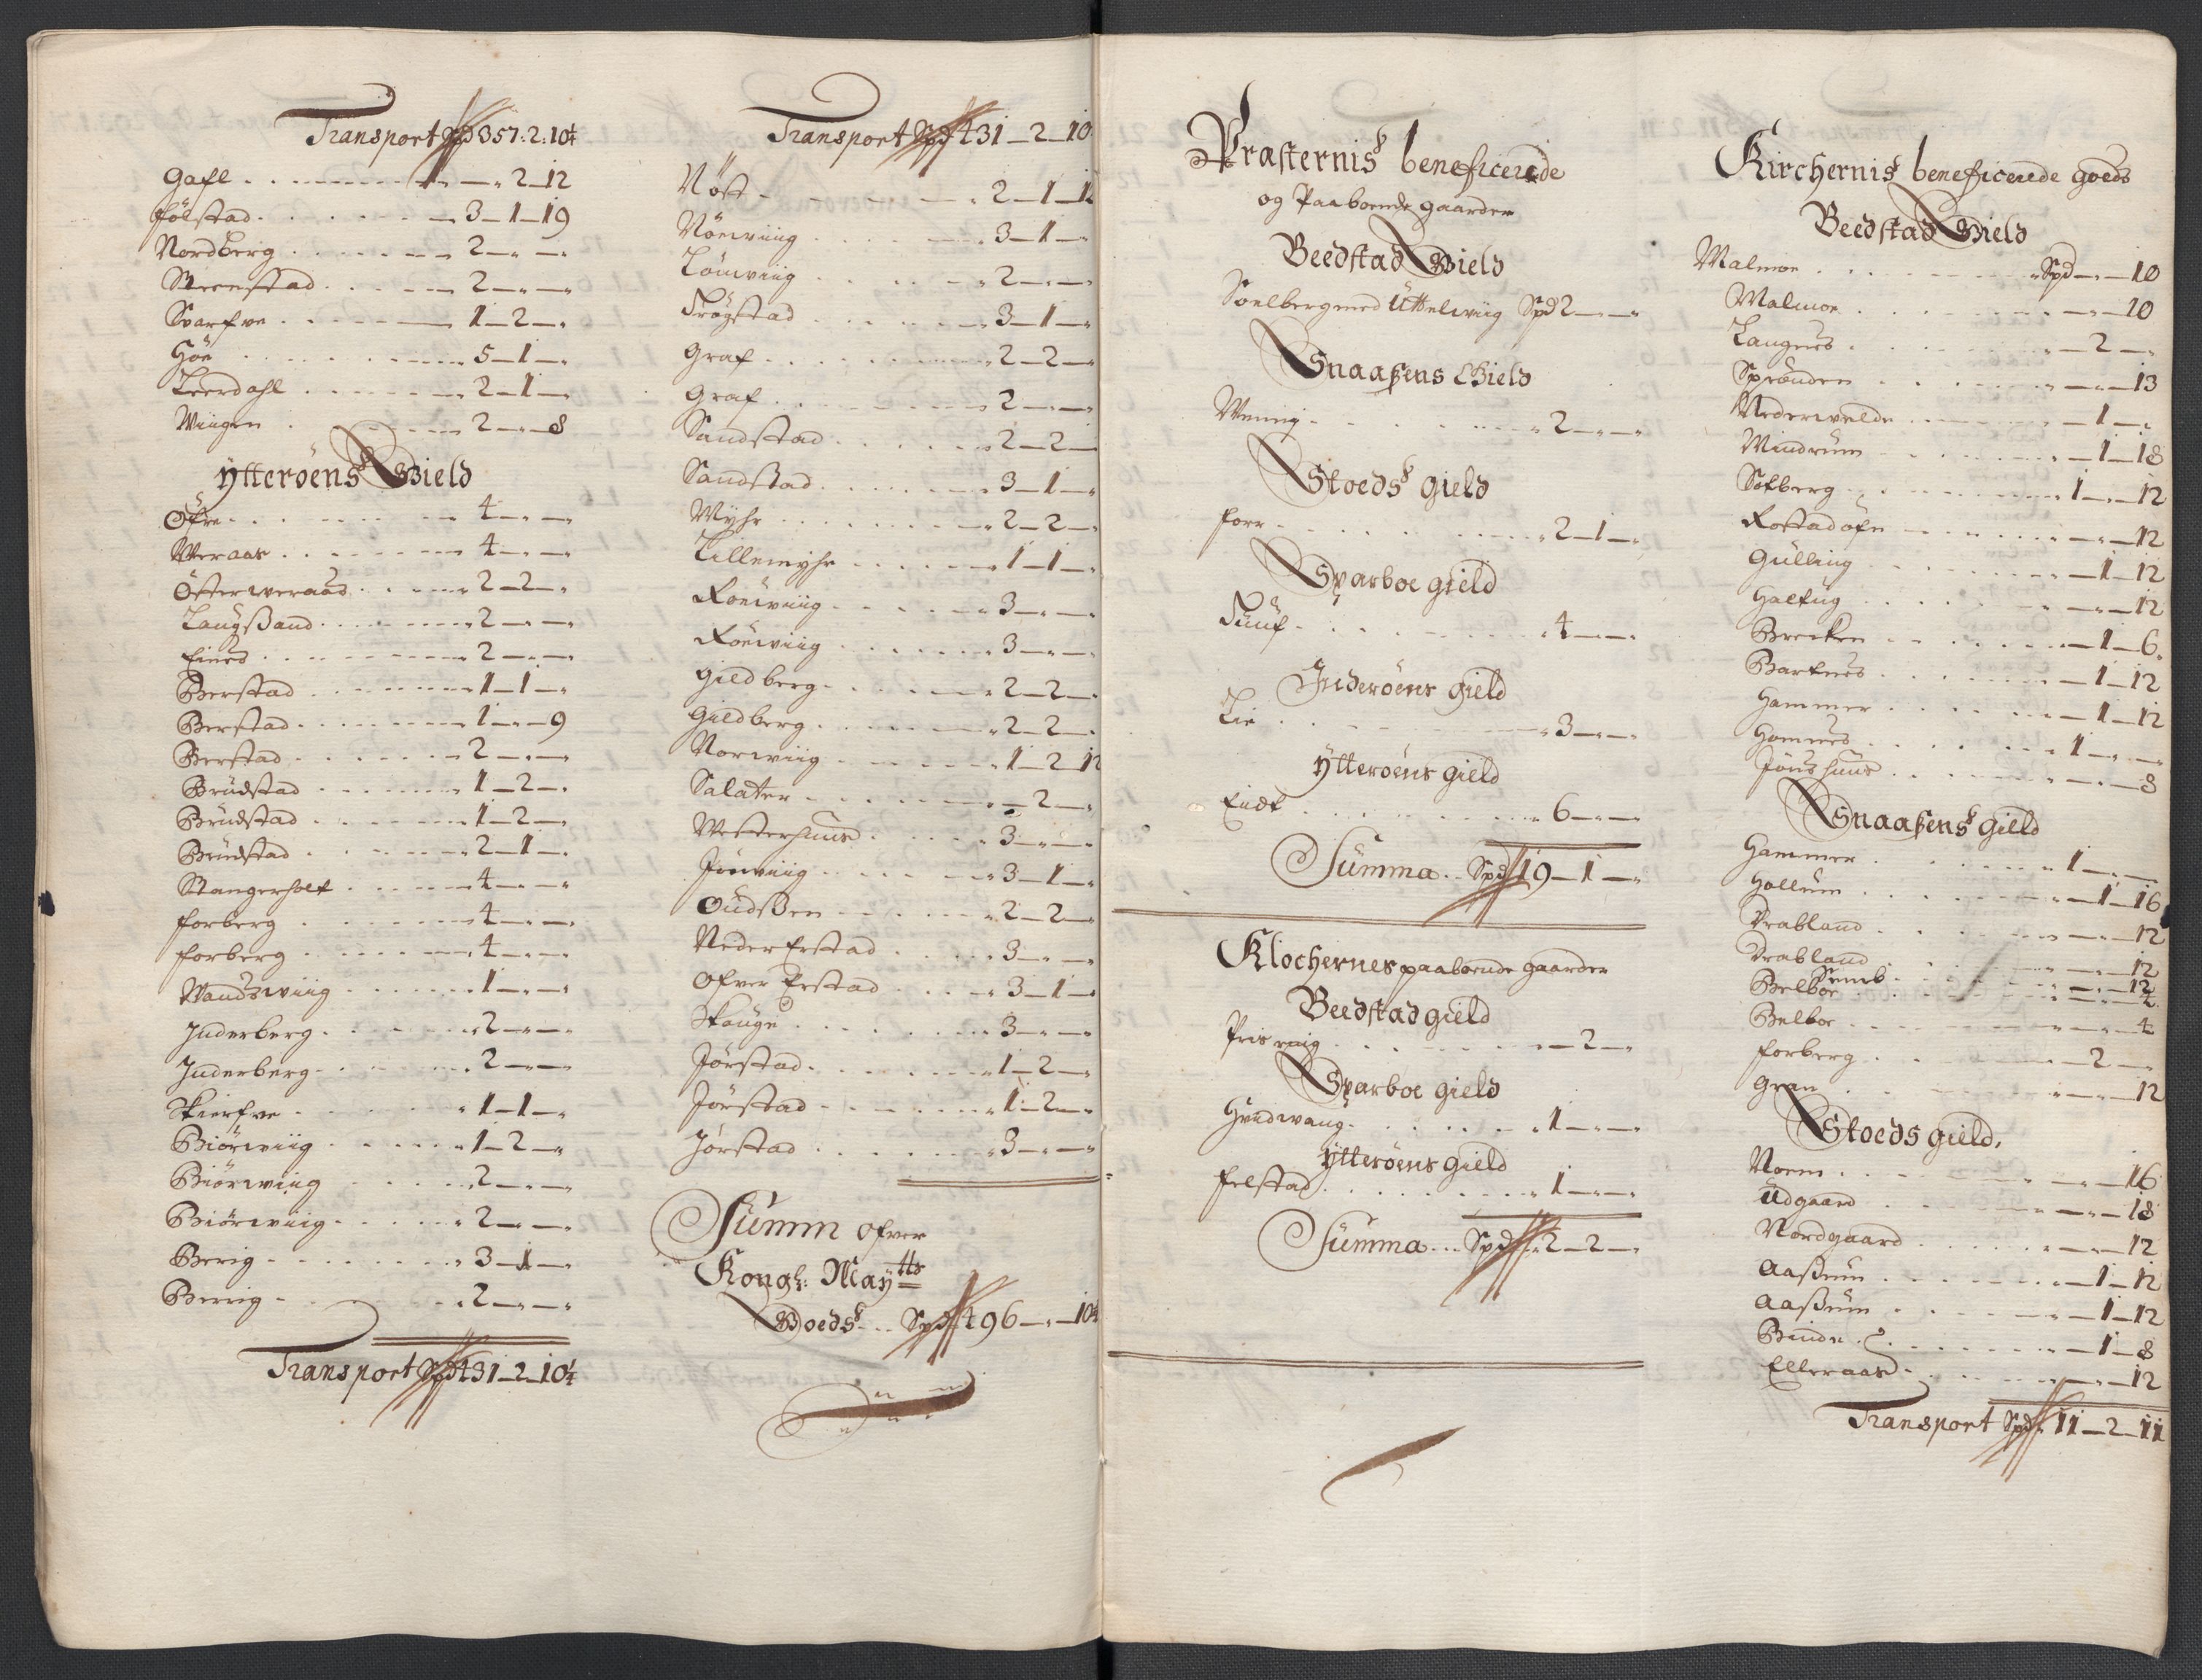 Transport Spd 357:2:10¼
Gafl - 2 - 12
Følstad 3 - 1 - 19
Nordberg 2 - -
Steenstad 2 - -
Svarfve 1 - 2 -
Høe 5 - 1 -
Leerdahl 2 - 1 -
Wiigen 2 - - 8
Ytterøens Gield
Øfre 4 - -
Weraas 4 - -
Østerweraas 2 - 2 -
Langsßand 2 - -
Eines 2 - -
Berstad 1 - 1 -
Berstad 1 - - 9
Berstad 2 - -
Brüdstad 1 - 2 -
Brüdstad 1 - 2 -
Brüdstad 2 - 1 -
Stangerholt 4 - -
Forberg 4 - -
Forberg 4 - -
Wandswiig 1 - -
Inderberg 2 - -
Inderberg 2 - -
Skierfve 1 - 1 -
Biørwiig 1 - 2 -
Biørwiig 2 - -
Biørwiig 2 - -
Berig 3 - 1 -
Berrig 2 - -
Transport Spd 431 - 2 - 10¼
Transport Spd 431 - 2 - 10
Nöst 2 - 1 - 12
Nörwiig 3 - 1 -
Lönwiig 2 - -
Frögstad 3 - 1 -
Graf 2 - 2 -
Graf 2 - -
Sandstad 2 - 2 -
Sandstad 3 - 1 -
Myhr 2 - 2 -
Lillemyhr 1 - 1 -
Roëwiig 3 - -
Roëwiig 3 - -
Gieldberg 2 - 2 -
Gieldberg 2 - 2 -
Norwiig 1 - 2 - 12
Salater - 2 -
Westerhuus 3 - -
Jörwiig 3 - 1 -
Oüdßen 2 - 2 -
Neder Erstad 3 - -
Ofver Erstad 3 - 1 -
Skauge 3 - -
Jørstad 1 - 2 -
Jørstad 1 - 2 -
Jørstad 3 - -
Summ ofver
Kongl: Maytts
Goeds Spd 496 - - 10¼
Præsternis beneficerede
og Paaboende gaarder
Beedstad Gield
Soelberg med Uttelwiig Spd 2 - -
Snaaßens Gield
2 - -
Stoeds gield
Forr 2 - 1 -
Sparboe gield
4 - -
Inderøens gield
Lie 3 - -
Ytterøens gield
Eidt 6 - -
Summa Spd 19 - 1 -
Klochernes paaboende gaarder
Beedstad gield
- 2 -
Sparboe gield
1 - -
Ytterøens gield
Felstad 1 - -
Summa Spd 2 - 2 -
Kirchernis beneficerede goeds
Beedstad Gield
Malmoe Spd - - 10
Malmoe - - 10
Langnes - 2 -
Sprønden - - 13
Nederwelde - 1 -
Mindrum - 1 - 18
Solberg 1 - - 12
Rostadøfn - - 12
Gülling - 1 - 12
Halfug - - 12
Brecken - 1 - 6
Barknes - 1 - 12
Hammer - 1 - 12
Homnes 1 - -
Jönshuus - - 8
Snaaßens gield
Hammer 1 - -
Hallum - 1 - 16
Vrabland - - 12
Drabland - - 12
Semb - - 12
Belboe - - 4
Belboe - - 4
Forberg - 2 -
Gran - - 12
Stoeds gield.
Noem - - 16
Udgaard - - 18
Nordgaard - - 12
Aaßum - 1 - 12
Aaßum - 1 - 12
Binde - 1 - 8
Elleraas - - 12
Transport Spd 11 - 2 - 11